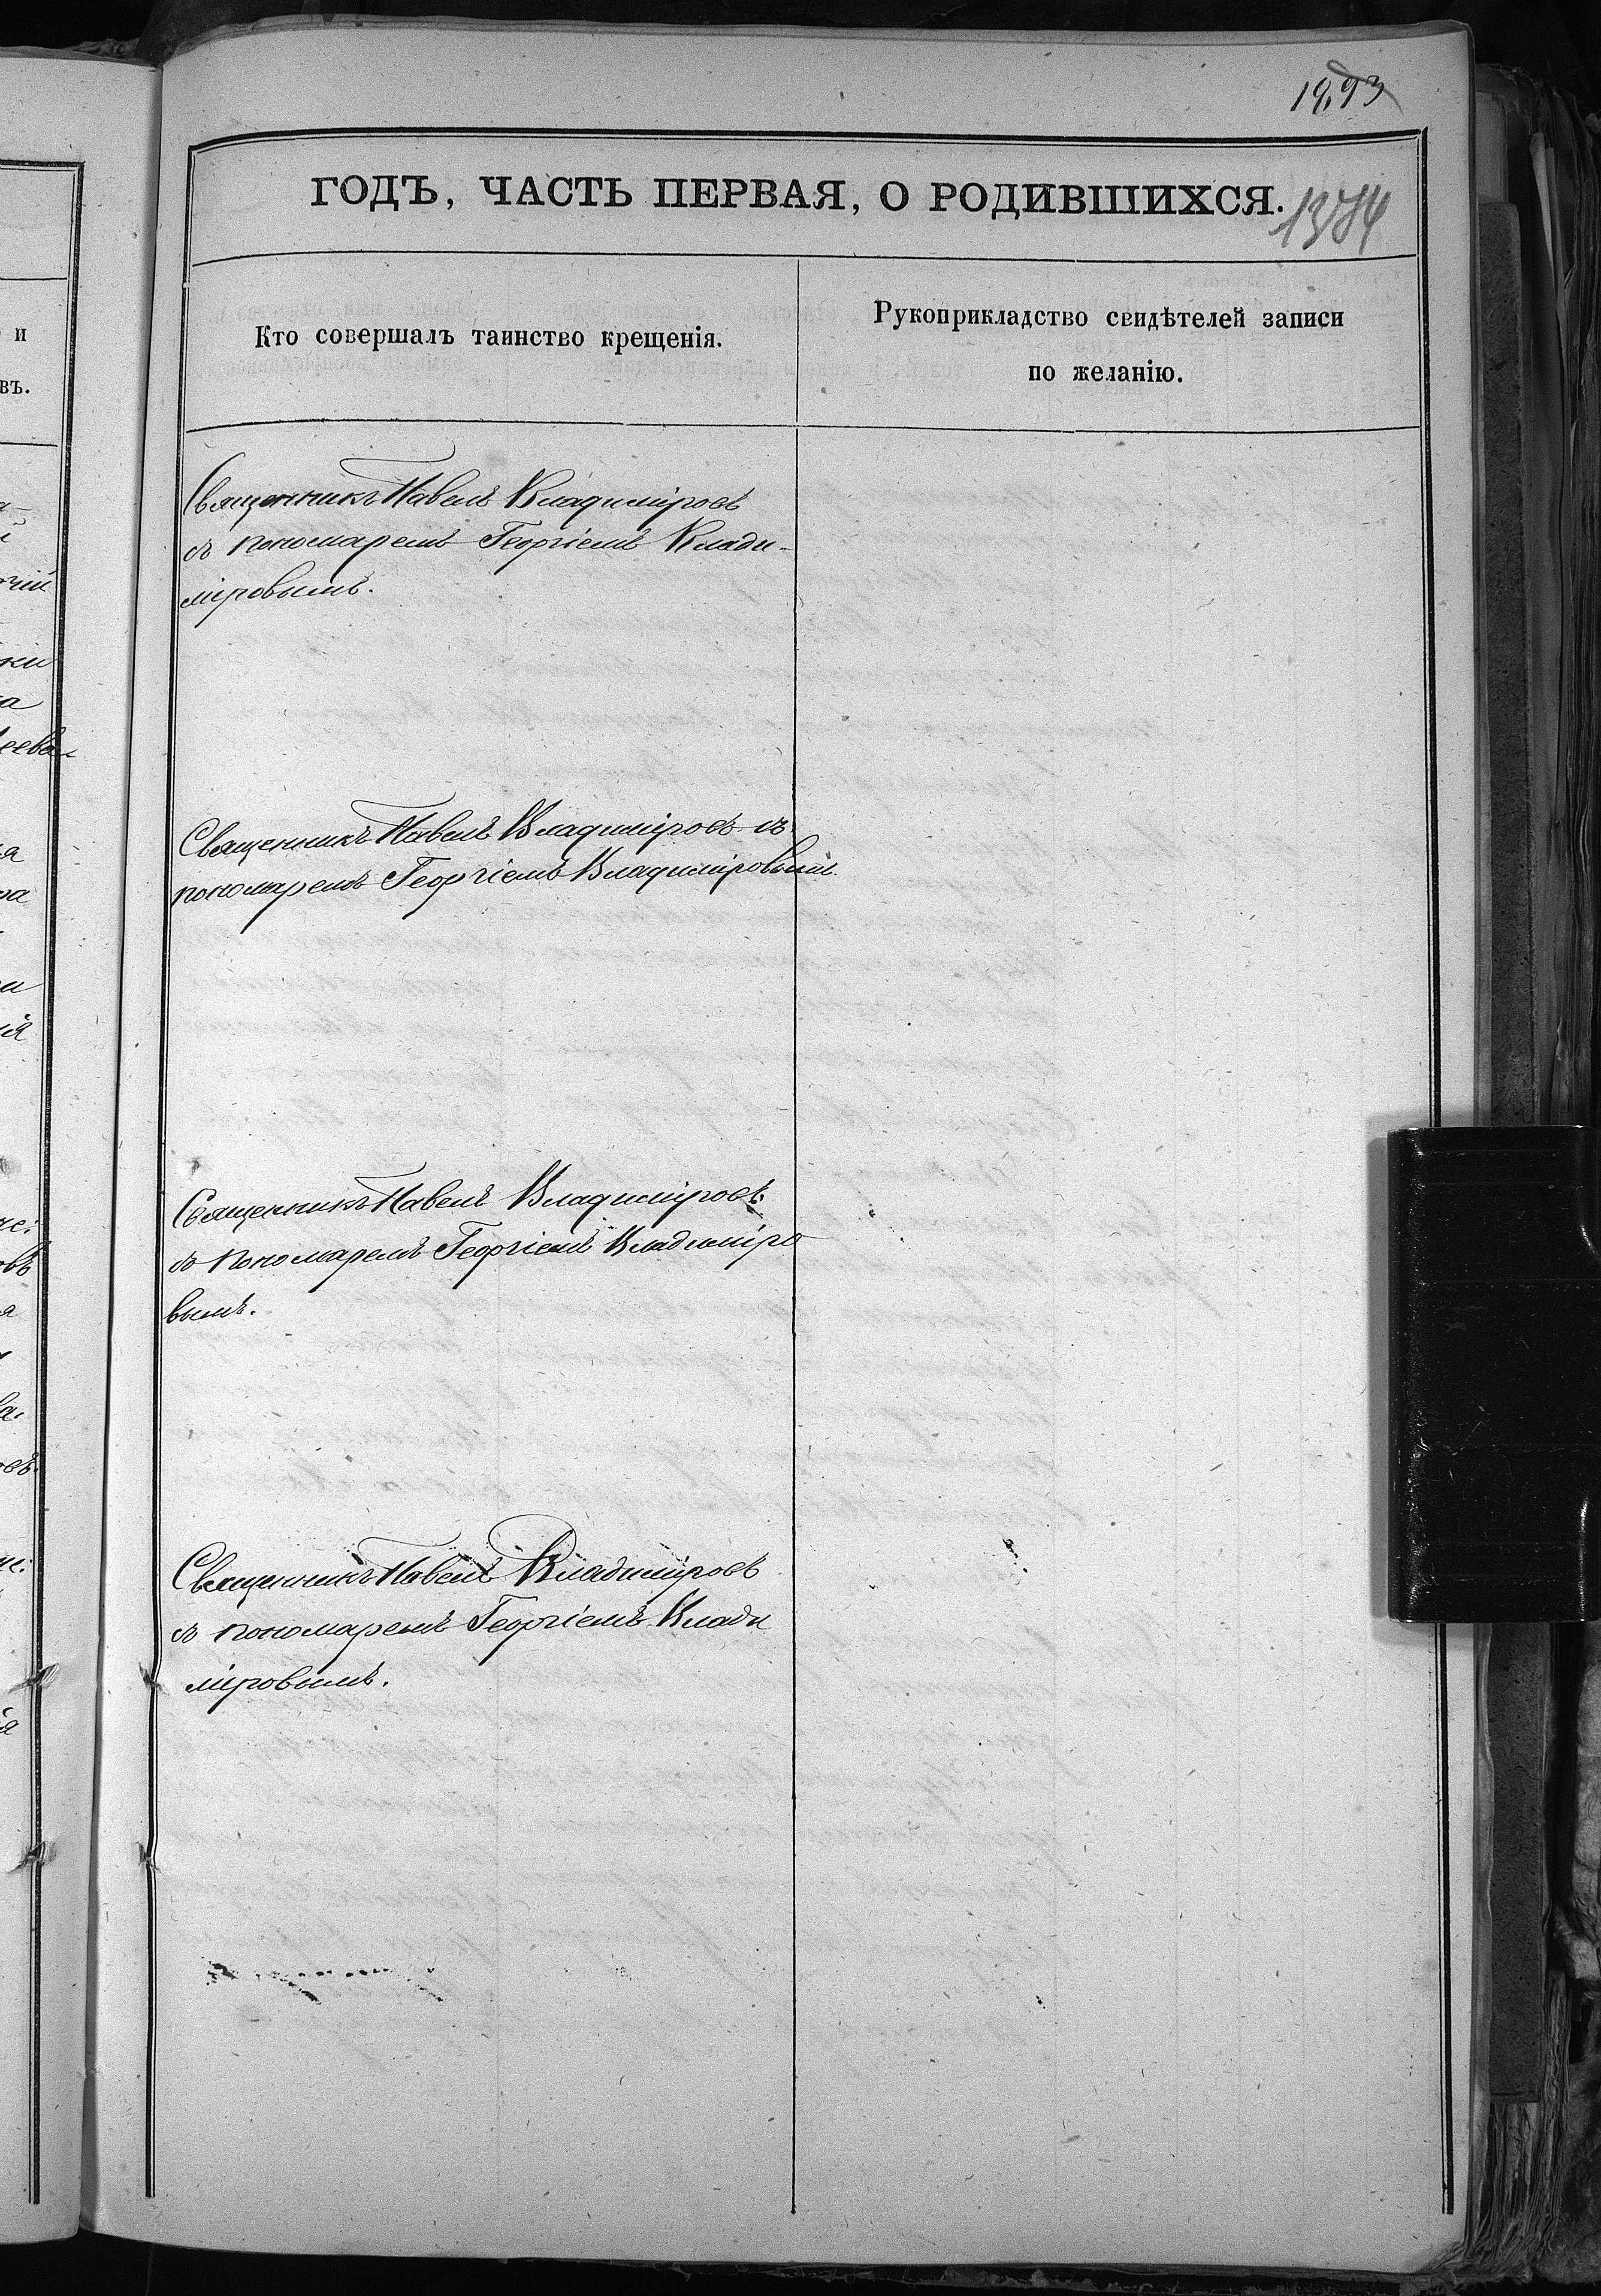 ГОДЪ, ЧАСТЬ ПЕРВАЯ, О РОДИВШИХСЯ.
Кто совершалъ таинство крещенія.
Рукоприкладство свидѣтелей записи
по желанію.
Священникъ Павелъ Владиміровъ
съ пономаремъ Георгіемъ Влади-
міровымъ.
Священникъ Павелъ Владиміровъ съ
пономаремъ Георгіемъ Владиміровымъ
Священникъ Павелъ Владиміровъ
съ пономаремъ Георгіемъ Владиміро
вымъ.
Священникъ Павелъ Владиміровъ
съ пономаремъ Георгіемъ Влади
міровымъ.